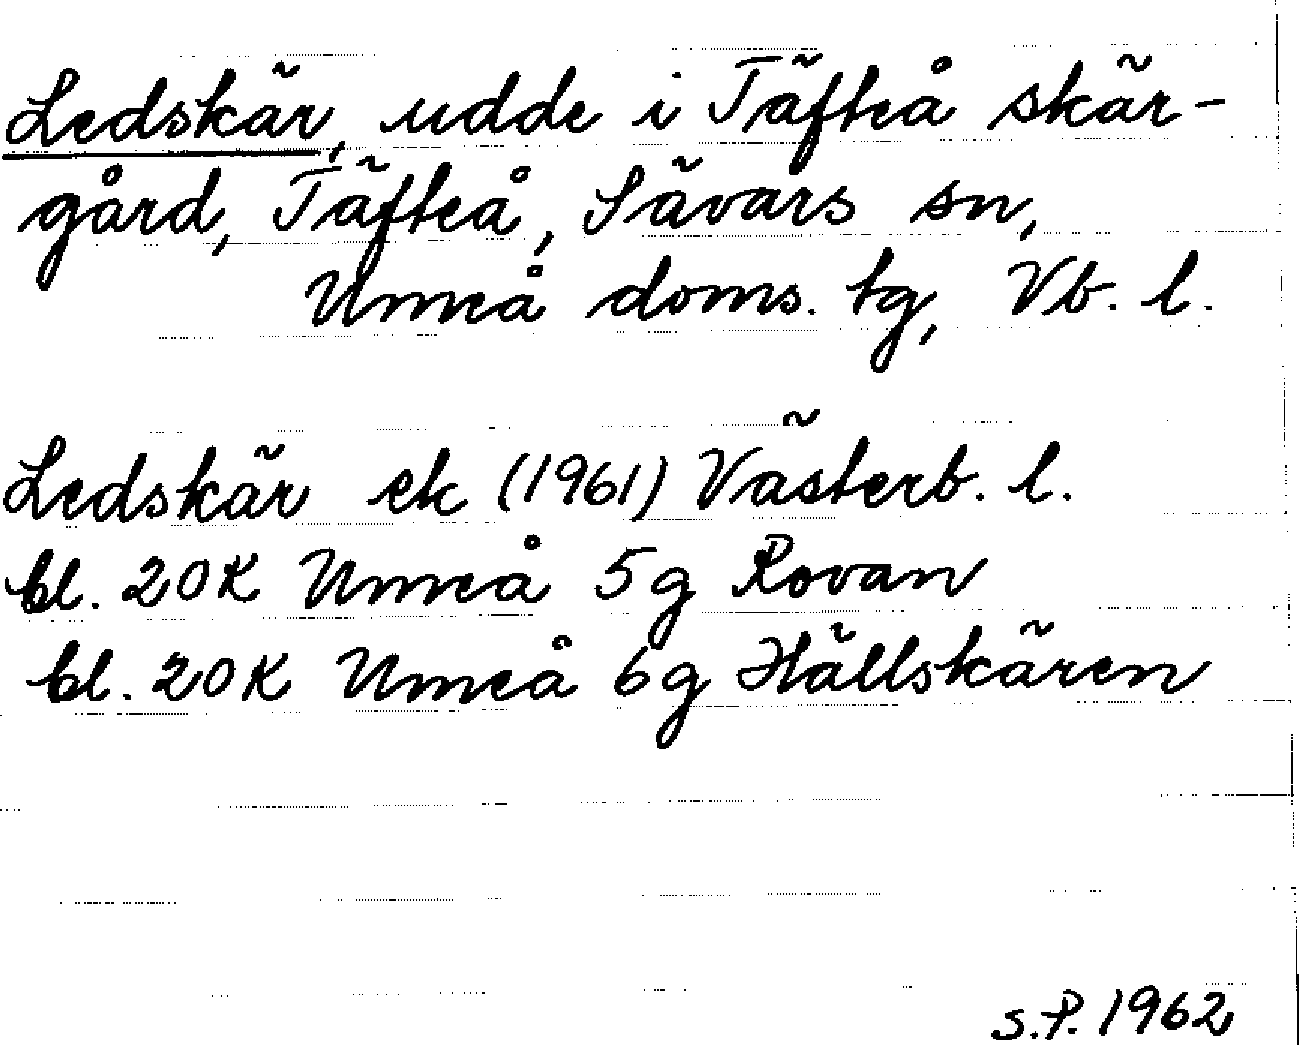 Ledskär, udde i Täfteå skär-
gård, Täfteå, Sävars sn,
Umeå doms. tg, Vb. l.
Ledskär ek (1961) Västerb. l.
bl. 20K Umeå 5g Rovan
bl. 20K Umeå 6g Hällskären
S.P. 1962